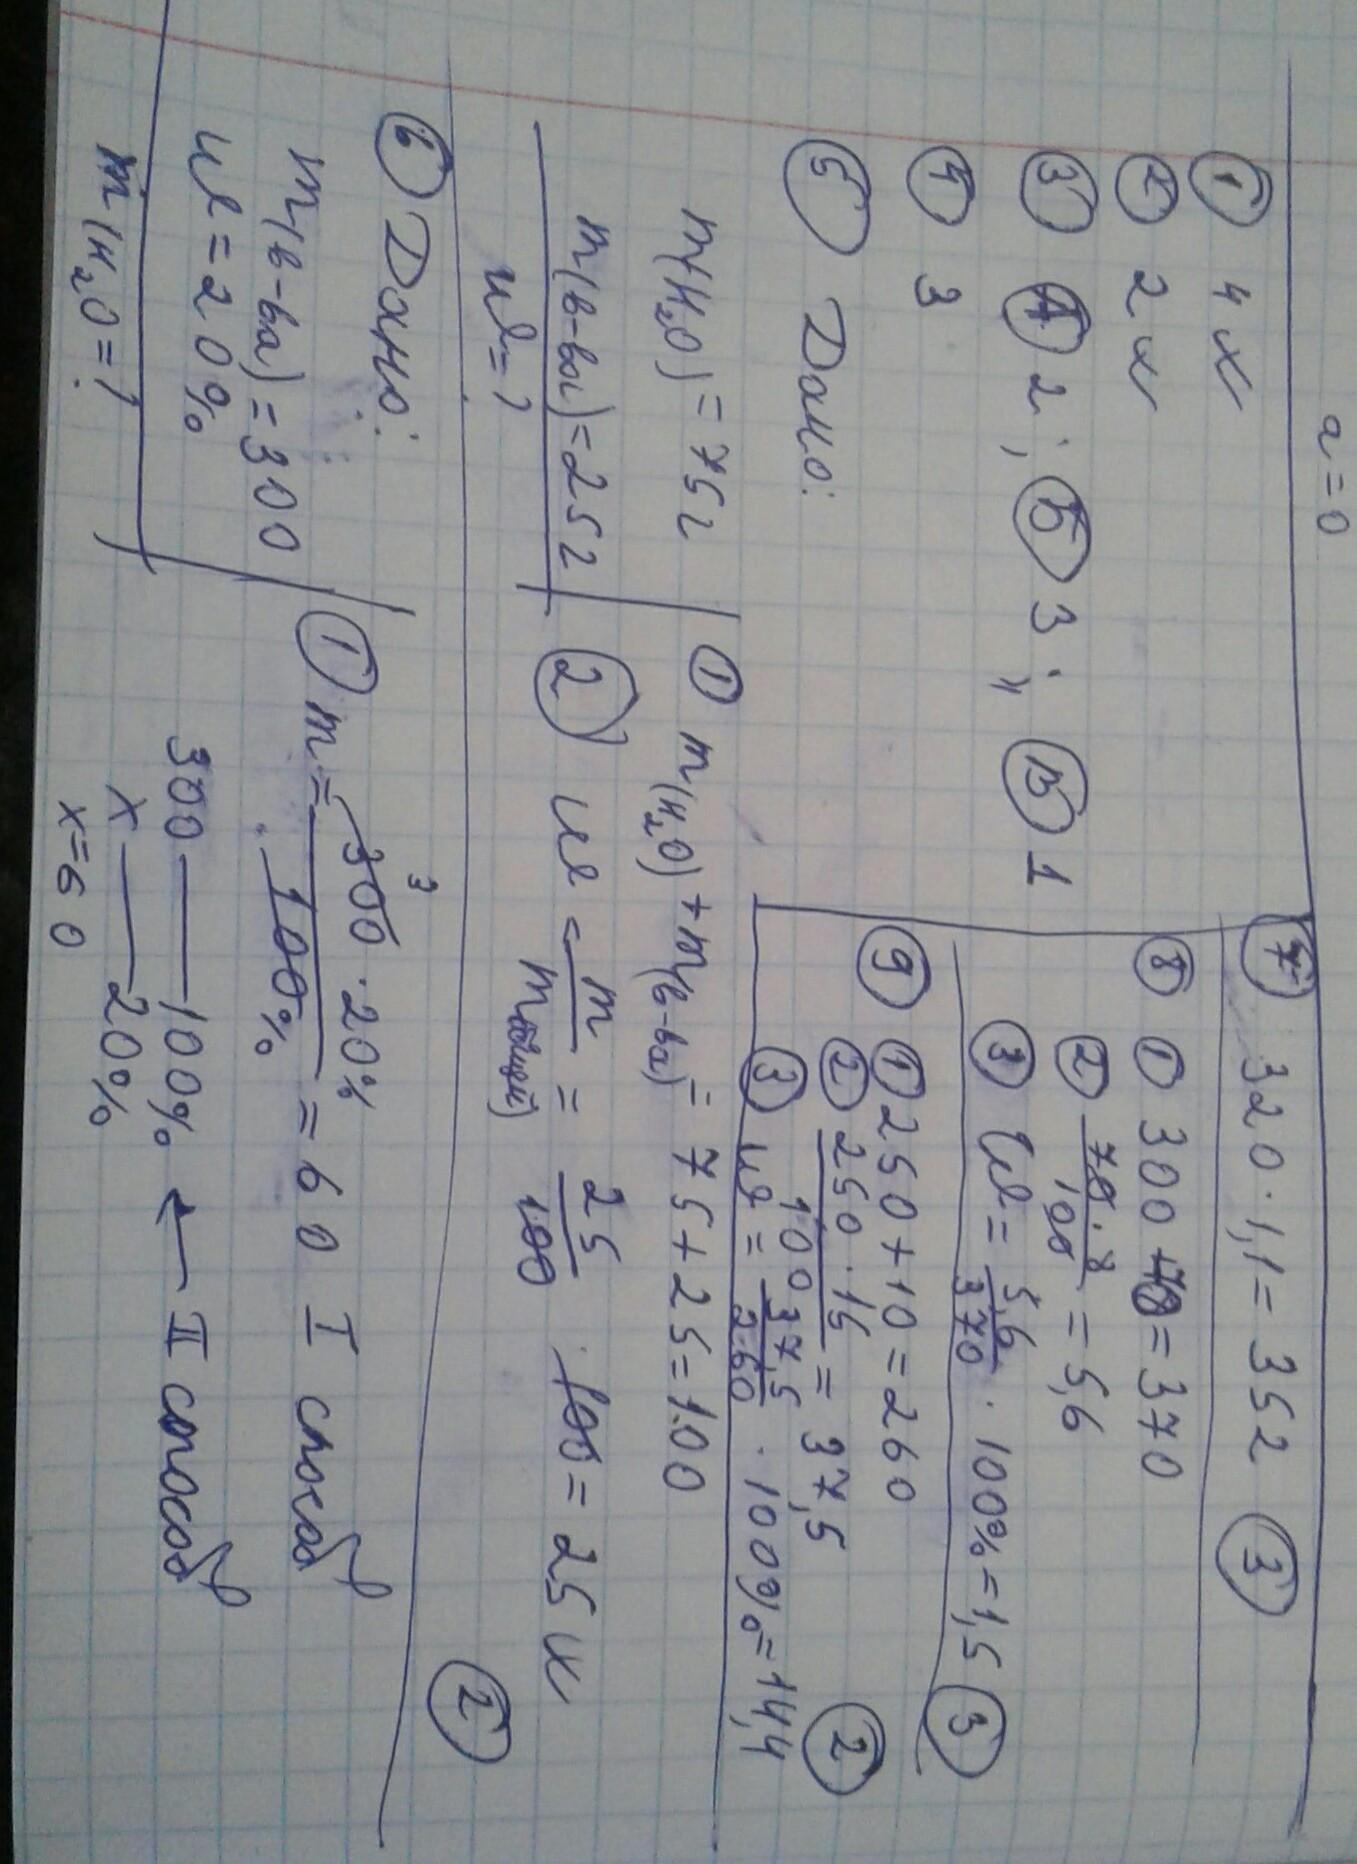 a = 0
① 4 и
② 2 и
③ А 2; Б 3; В 1
④ 3
⑤ Дано:
m(H₂O) = 75 г
m(в-ва) = 25 г
ω = ?
① m(H₂O) + m(в-ва) = 75 + 25 = 100
② ω = m / m(общей) = 25/100 · 100 = 25 и
②
⑥ Дано:
m(в-ва) = 300
ω = 20%
m(H₂O = ?
① m = 300 · 20% / 100% = 60 I способ
3
300 — 100% ← II способ
x — 20%
x = 60
⑦ 320 · 1,1 = 352 ③
⑧ ① 300 + 70 = 370
② 70 · 8 / 100 = 5,6
③ ω = 5,6/370 · 100% = 1,5 ③
⑨ ① 250 + 10 = 260
② 250 · 15 / 100 = 37,5 ②
③ ω = 37,5/260 · 100% = 14,4